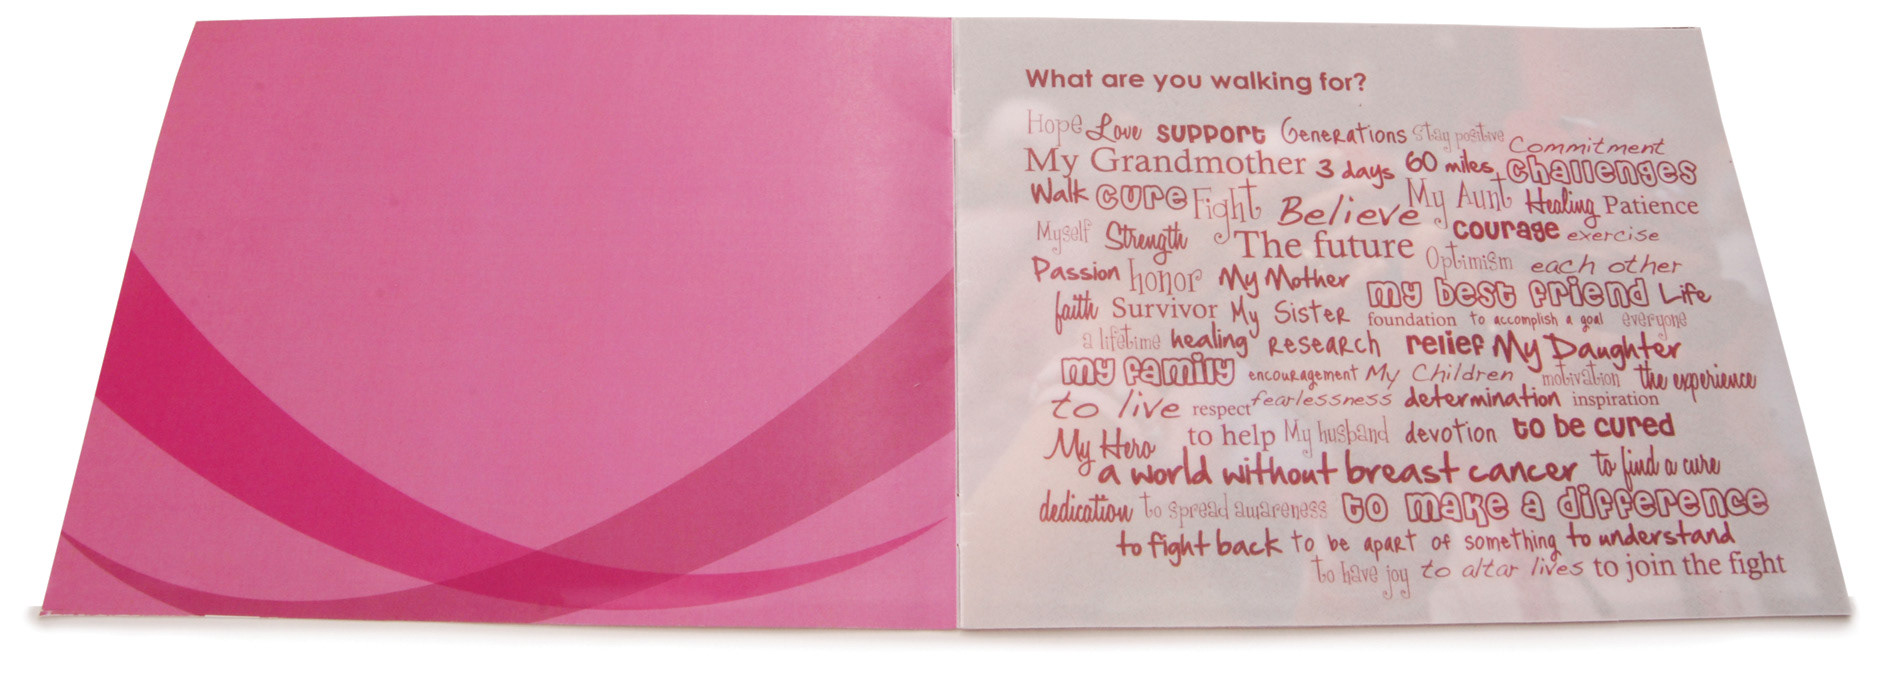 What are you walking for?
Hope Love support Generations Stay positive Commitment
My Grandmother 3 days 60 miles challenges
Walk cure Fight Believe My Aunt Healing Patience
Myself Strength The future courage exercise
Passion honor My Mother Optimism each other
faith Survivor My Sister my best friend Life
foundation to accomplish a goal everyone
a lifetime healing Research relief My Daughter
my family encouragement My Children motivation the experience
to live respect fearlessness determination inspiration
My Hero to help My husband devotion to be cured
a world without breast cancer to find a cure
dedication to spread awareness to make a difference
to fight back to be apart of something to understand
to have joy to altar lives to join the fight